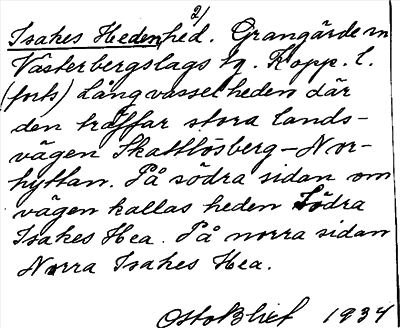 2/
Isakes Heden, hed. Grangärde sn
Västerbergslags tg. Kopp. l.
(forts) Långvasselheden där
den träffar stora lands-
vägen Skattlösberg-Nor-
hyttan. På södra sidan om
vägen kallas heden Södra
Isakes Hea. På norra sidan
Norra Isakes Hea.
Otto Blixt 1934